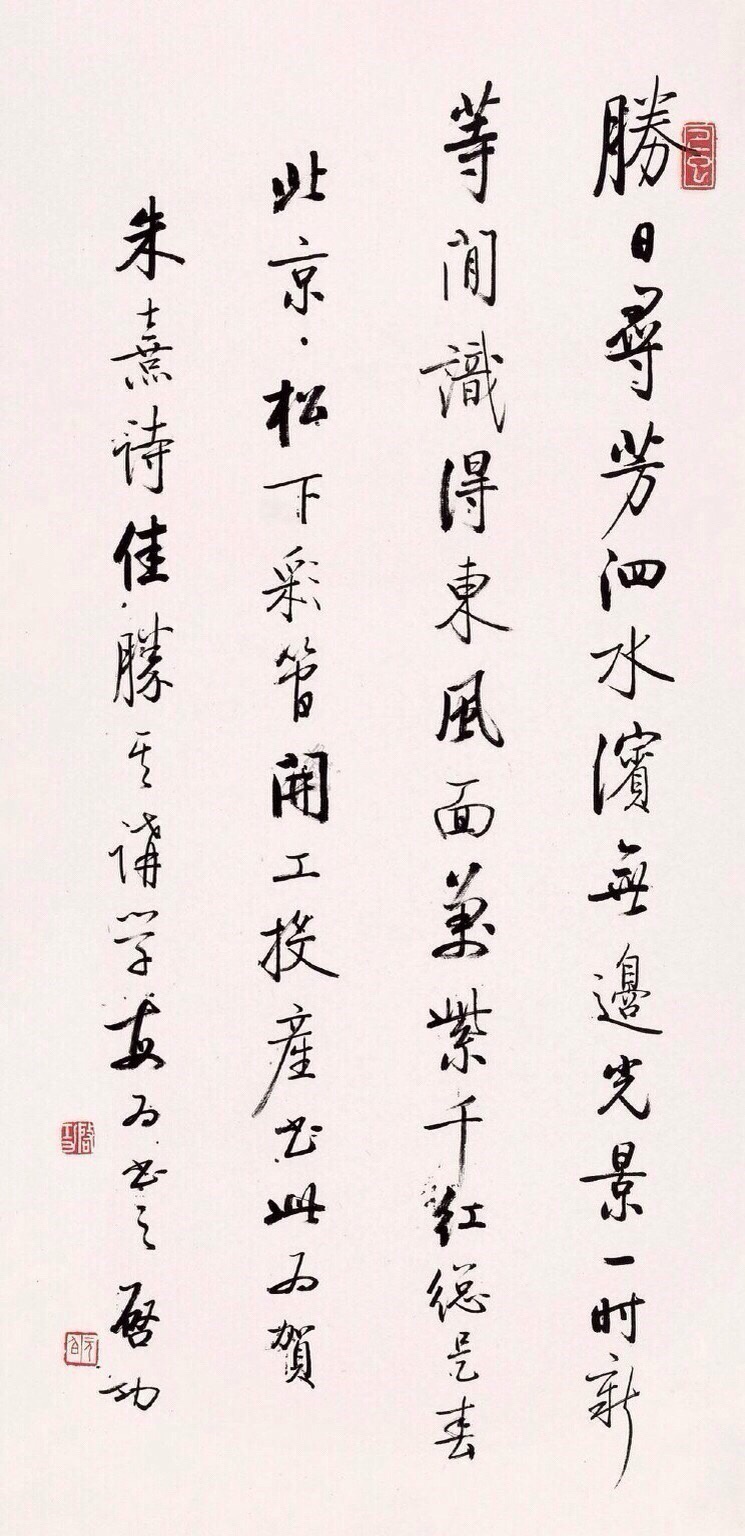 勝日尋芳泗水濱無邊光景一时新
等閒識得東風面萬紫千紅総是春
北京·松下彩管開工投產書此為賀
朱熹詩佳勝其講学每為書之啓功
啓功
元白